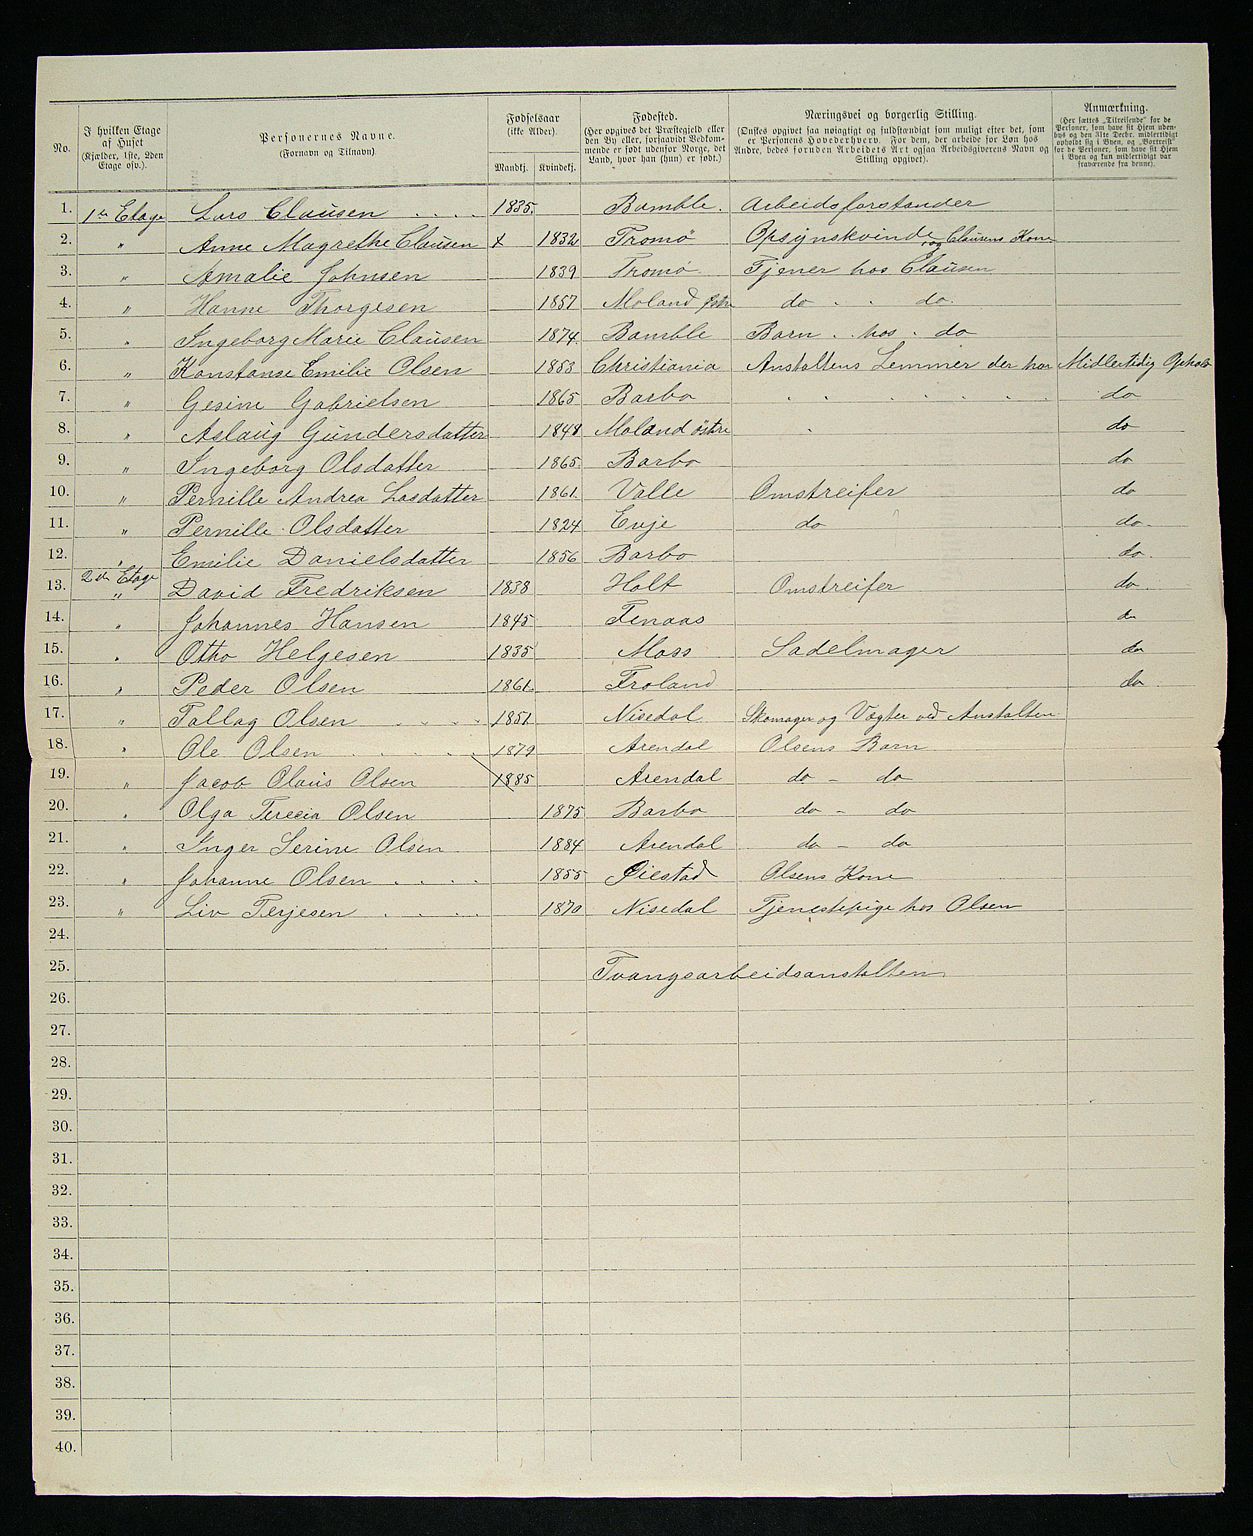 No. I hvilken Etage af Huset (Kjælder, 1ste, 2den Etage osv.). Personernes Navne. (Fornavn og Tilnavn). Fødselsaar (ikke Alder). Mandkj. Kvindekj. Fødested. (Her opgives det Præstegjeld eller den By eller, forsaavidt Vedkommende er født udenfor Norge, det Land, hvor han (hun) er født.) Næringsvei og borgerlig Stilling. (Ønskes opgivet saa nøiagtigt og fuldstændigt som muligt efter det, som er Personens Hovederhverv. For dem, der arbeide for Løn hos Andre, bedes foruden Arbeidets Art ogsaa Arbeidsgiverens Navn og Stilling opgivet). Anmærkning. (Her sættes „Tilreisende" for de Personer, som have sit Hjem udenbys og den 31te Decbr. midlertidigt opholdt sig i Byen, og „Bortreist" for de Personer, som have sit Hjem i Byen og kun midlertidigt var fraværende fra denne).
1. 1ste Etage Lars Clausen . . . . 1835. Bamble. Arbeidsforstander
2. " Anne Magrethe Clausen x 1832 Tromø Opsynskvinde og Clausens Kone
3. " Amalie Johnsen 1839 Tromø Tjener hos Clausen
4. " Hanne Thorgesen 1857 Moland do . . do.
5. " Ingeborg Marie Clausen 1874. Bamble Barn . hos . do
6. " Konstanse Emilie Olsen 1853 Christiania Anstaltens Lemmer der har Midlertidig Ophold
7. " Gesine Gabrielsen 1865 Barbo . . . . . . . do
8. " Aslaug Gundersdatter 1848 Moland östre . do
9. " Ingeborg Olsdatter 1865. Barbo do
10. " Pernille Andrea Lasdatter 1861. Valle Omstreifer do
11. " Pernille Olsdatter 1824 Evje do do.
12. " Emilie Danielsdatter 1856 Barbo do.
2den Etage
13. " David Fredriksen 1838 Holt Omstreifer do
14. " Johannes Hansen 1845 Fenaas do
15. " Otho Helgesen 1835 Moss Sadelmager do
16. " Peder Olsen 1861. Froland do.
17. " Tallag Olsen . . . . 1851. Nisedal Skomager og Vægter ved Anstalten
18. " Ole Olsen . . . . . 1879 Arendal Olsens Barn
19. " Jacob Olaus Olsen 1885 Arendal do - do
20. " Olga Terecia Olsen 1875 Barbo do - do
21. " Inger Serine Olsen 1884 Arendal do - do
22. " Johanne Olsen . . . . 1855 Øiestad Olsens Kone
23. " Liv Terjesen . . . . 1870 Nisedal Tjenestepige hos Olsen
24.
25. Tvangsarbeidsanstalten
26.
27.
28.
29.
30.
31.
32.
33.
34.
35.
36.
37.
38.
39.
40.